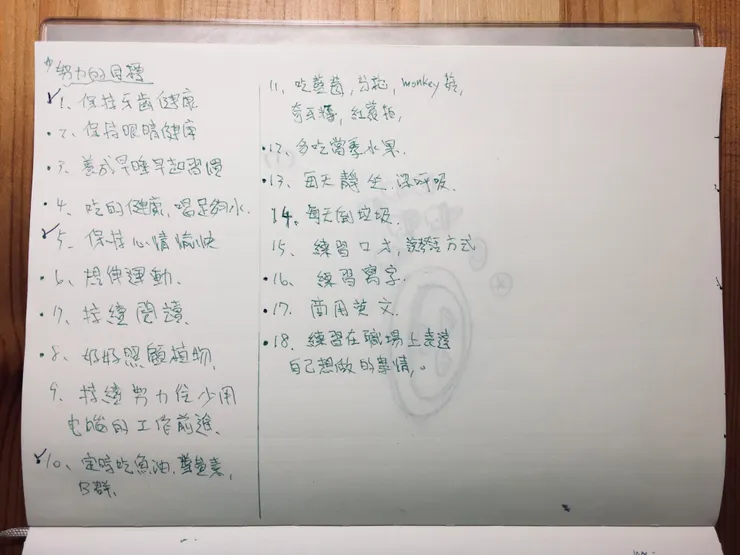 努力的目標
✓1、保持牙齒健康
•2、保持眼睛健康
•3、養成早睡早起習慣
•4、吃的健康、喝足夠水.
✓5、保持心情愉快
•6、拉伸運動.
•7、持續閱讀.
•8、好好照顧植物.
9、持續努力往少用
电腦的工作前進.
✓10、定時吃魚油、葉黃素,
B群.
11、吃藍莓, monkey
紅蘿蔔,
•12、多吃當季水果.
•13、每天靜坐、深呼吸.
14、每天倒垃圾.
15、練習口才, 說話方式
•16、練習寫字.
•17、商用英文.
•18、練習在職場上表達
自己想做的事情,。